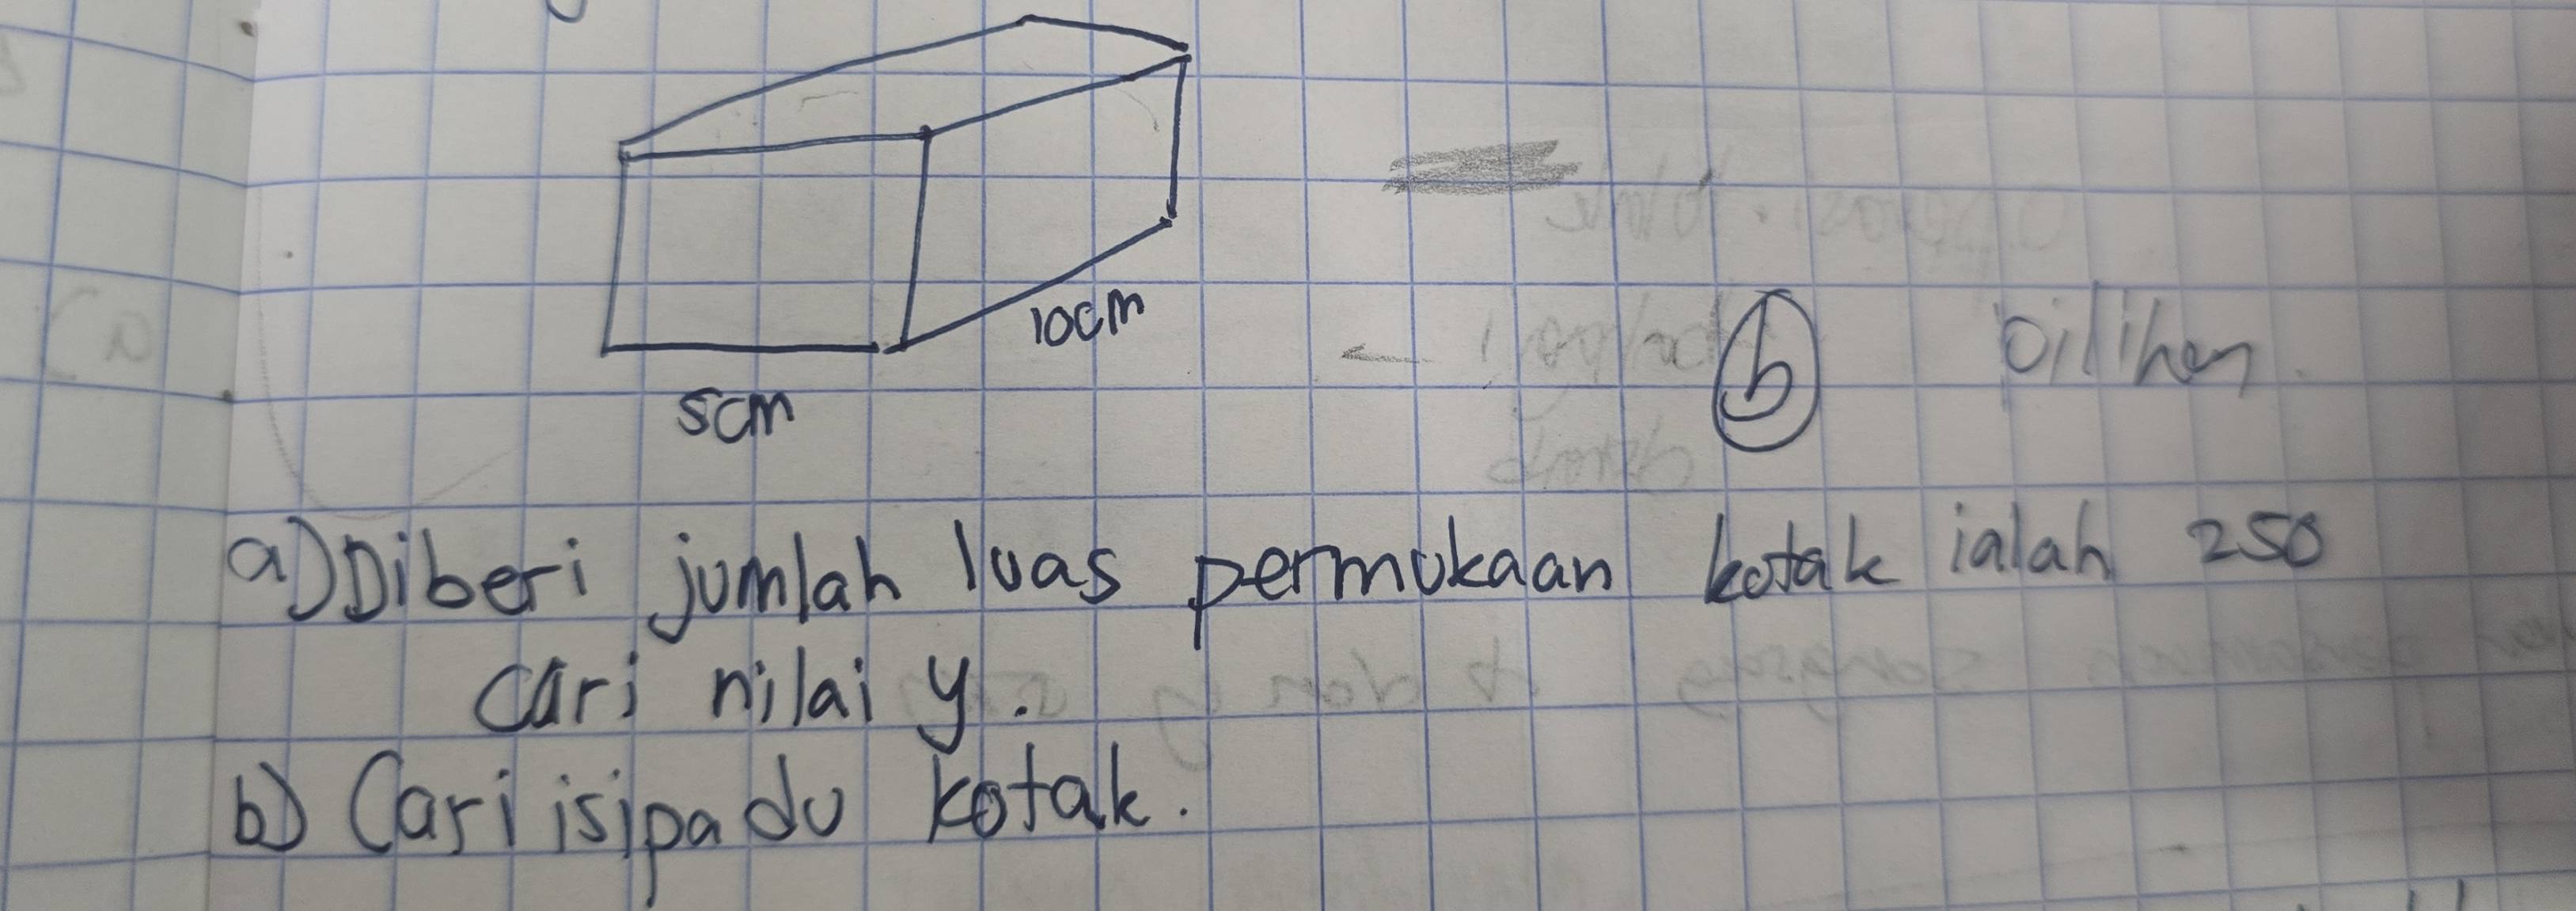 10cm
5cm
b
a) Diberi jumlah luas permukaan kotak ialah 250
cari nilai y.
b) Cari isipadu kotak.